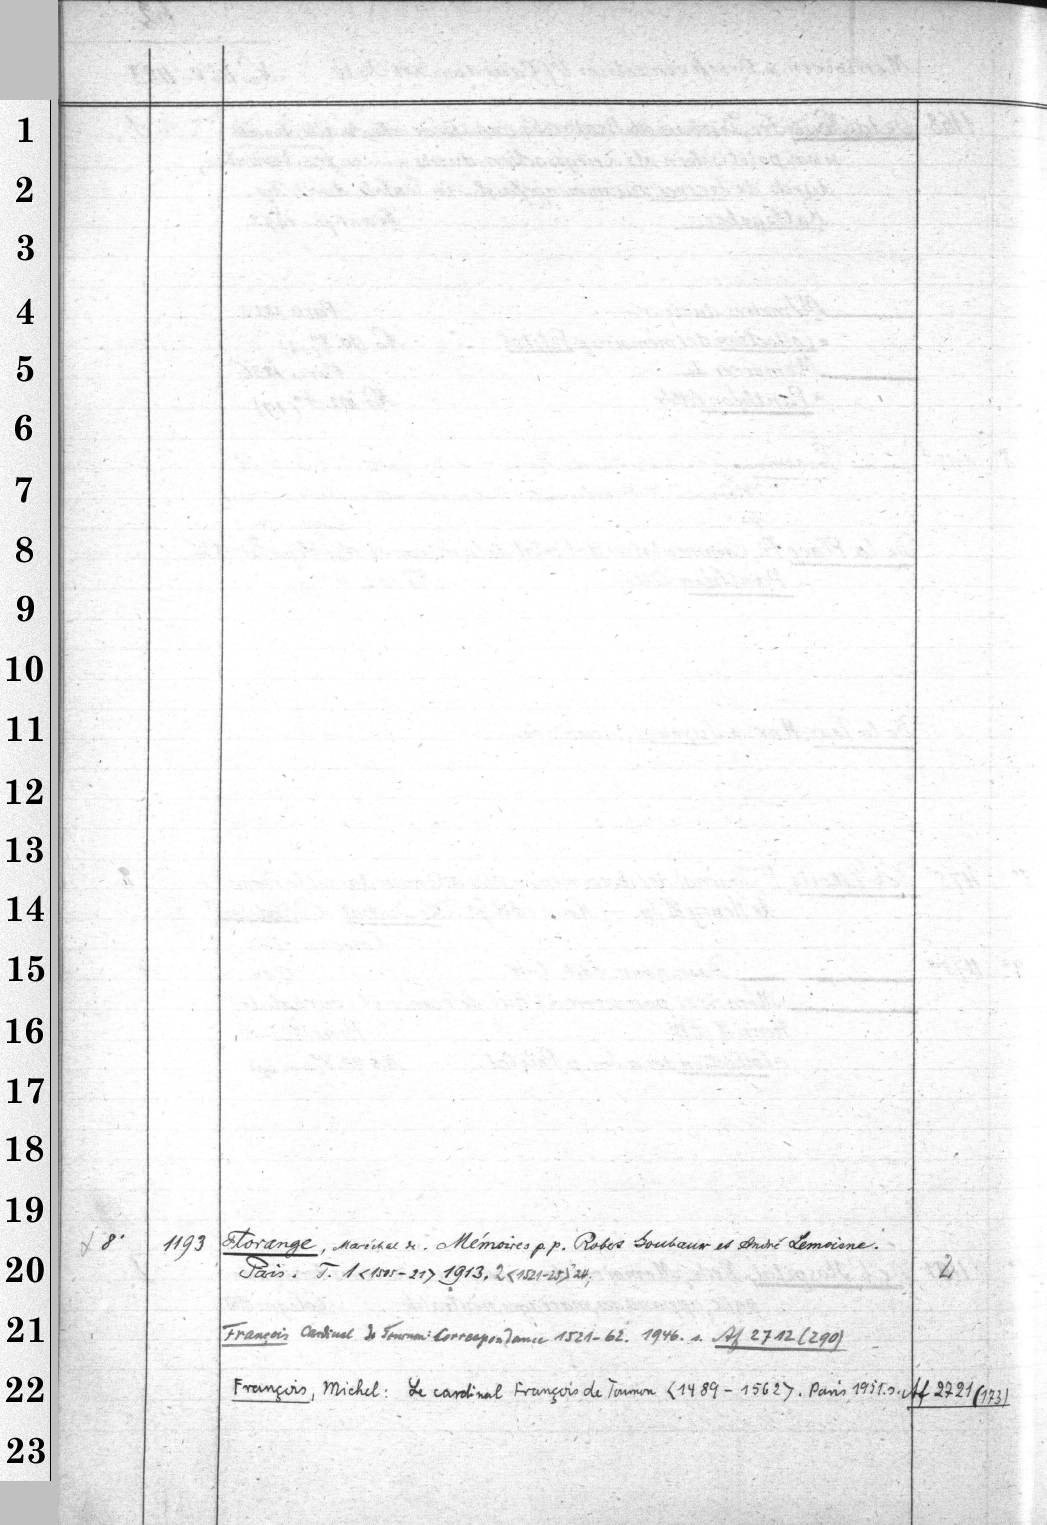 1
2
3
4
5
6
7
8
9
10
11
12
13
14
15
16
17
18
19
20
21
22
23
8° 1193 Florange, Maréchal de. Mémoires p.p. Robert Goubaux et André Lemoisne.
Paris. T. 1 <1505-21> 1913. 2 <1521-25> 24. 2
François Cardinal de Tournon: Correspondance 1521-62. 1946. s. Af 2712 (290)
François, Michel: Le cardinal François de Tournon <1489-1562>. Paris 1951. s. Af 2721 (173)